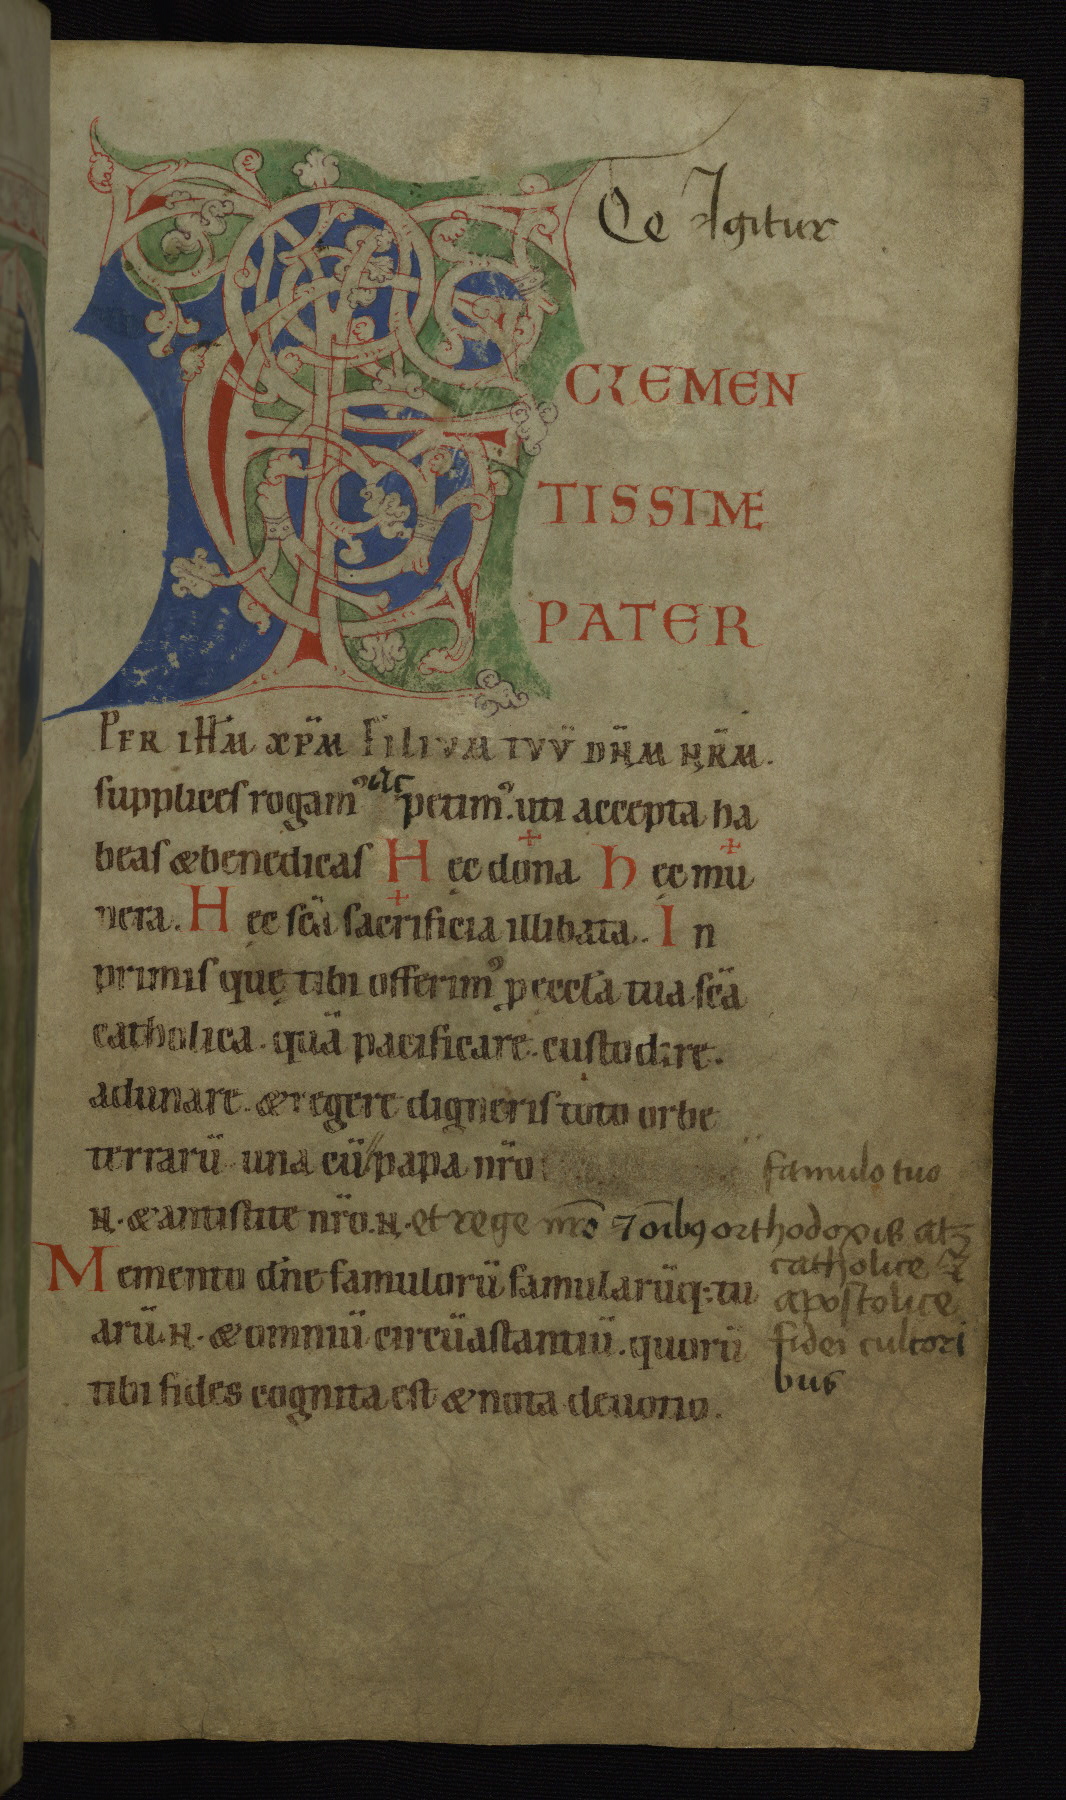 3
Te Igitur
CLEMEN
TISSIME
PATER
PER IHM XPM FILIUM TUU DNM NRM.
supplices rogam⁹ ac petim⁹. uti accepta ha
beas & benedicas Hec dona hec mu
nera. Hec scā sacrificia illibata. In
primis quę tibi offerim⁹ p eccła tua scā
catholica. quā pacificare. custodire.
adunare. & regere digneris toto orbe
terrarū una cū papa nr̄o famulo tuo
N. & antistite nr̄o. N. et rege nr̄o ⁊ oīb9 orthodoxis atqꝫ
catholice ⁊
apostolice
fidei cultori
bus
Memento dn̄e famulorū famularūq: tu
arū. N. & omniū circūastantiū. quorū
tibi fides cognita est & nota deuotio.